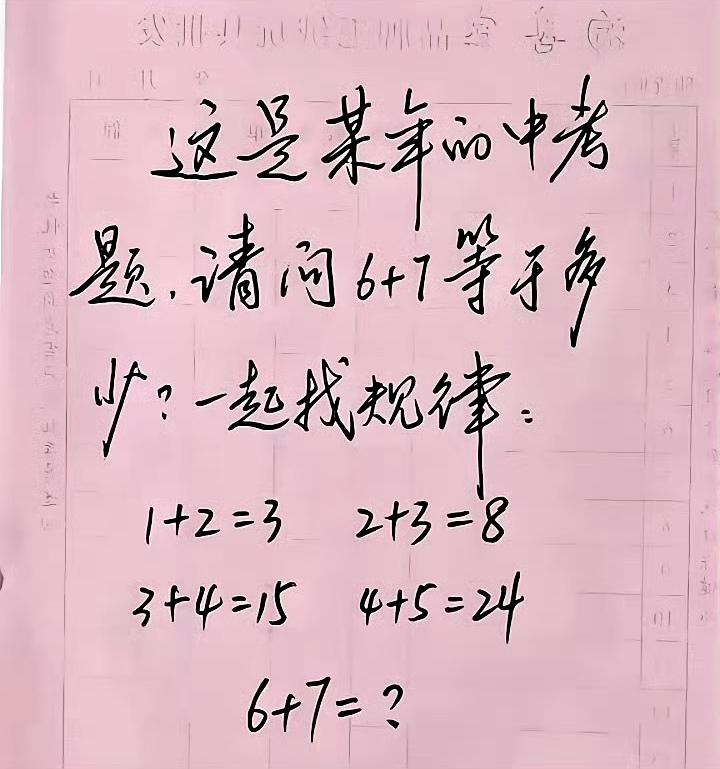 这是某年的中考
题,请问6+7等于多
少?一起找规律:
1+2=3 2+3=8
3+4=15 4+5=24
6+7=?